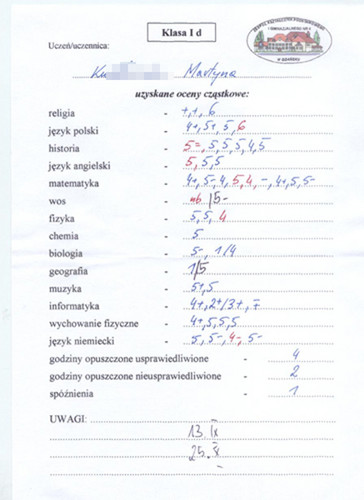 Klasa I d
Uczeń/uczennica:
Martyna
uzyskane oceny cząstkowe:
religia - +,+, 6
język polski - 4+, 5+, 5, 6
historia - 5=, 5, 5, 5, 4, 5
język angielski - 5, 5, 5
matematyka - 4+, 5-, 4, 5, 4, -, 4+, 5, 5-
wos - nb |5-
fizyka - 5, 5, 4
chemia - 5
biologia - 5-, 1/4
geografia - 1/5
muzyka - 5+, 5
informatyka - 4+, 2+/3+,
wychowanie fizyczne - 4+, 5, 5, 5
język niemiecki - 5, 5-, 4-, 5-
godziny opuszczone usprawiedliwione - 4
godziny opuszczone nieusprawiedliwione - 2
spóźnienia - 1
UWAGI:
13. IX
25. X